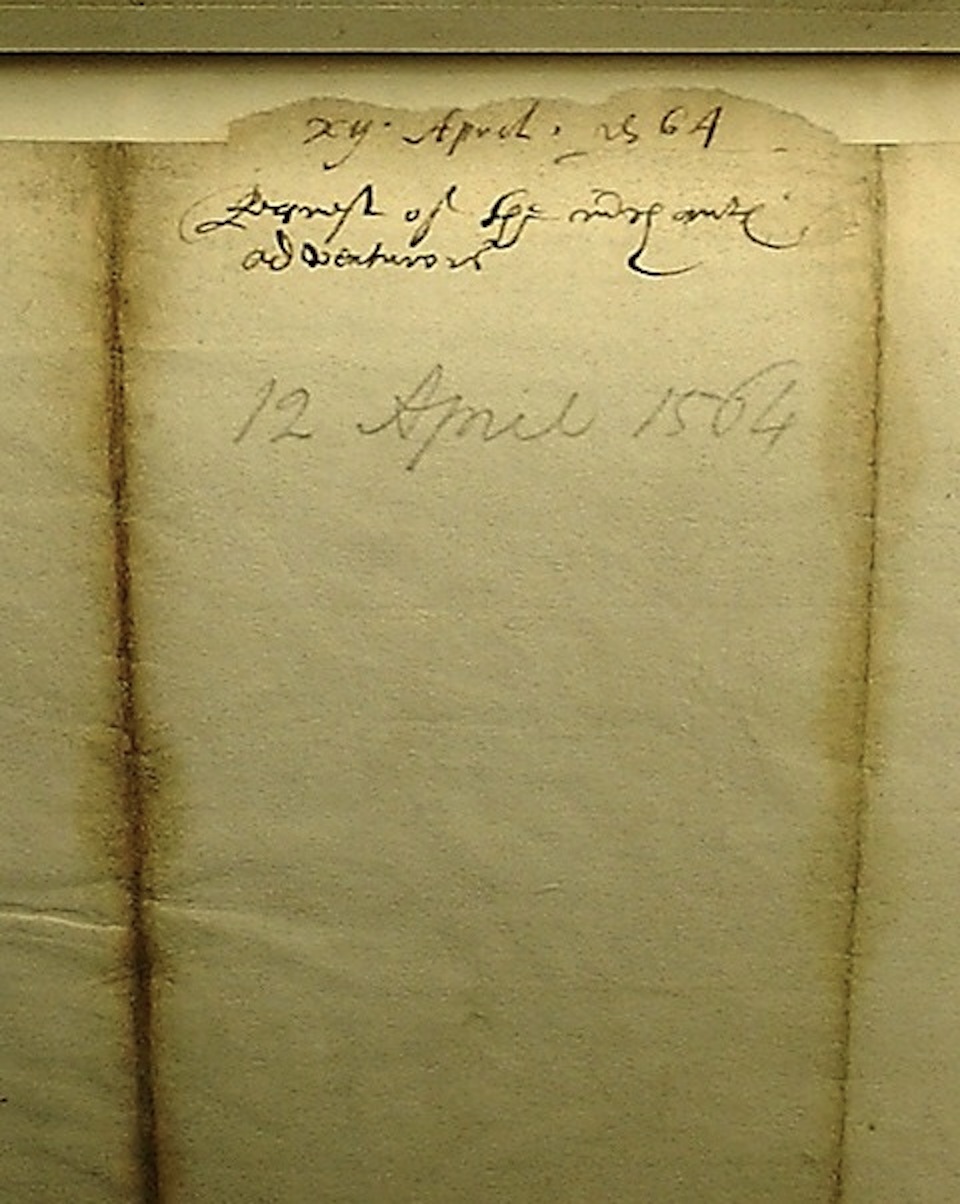 xij. April. 1564
Request of the m̄chantꝭ
adventurors
12 April 1564